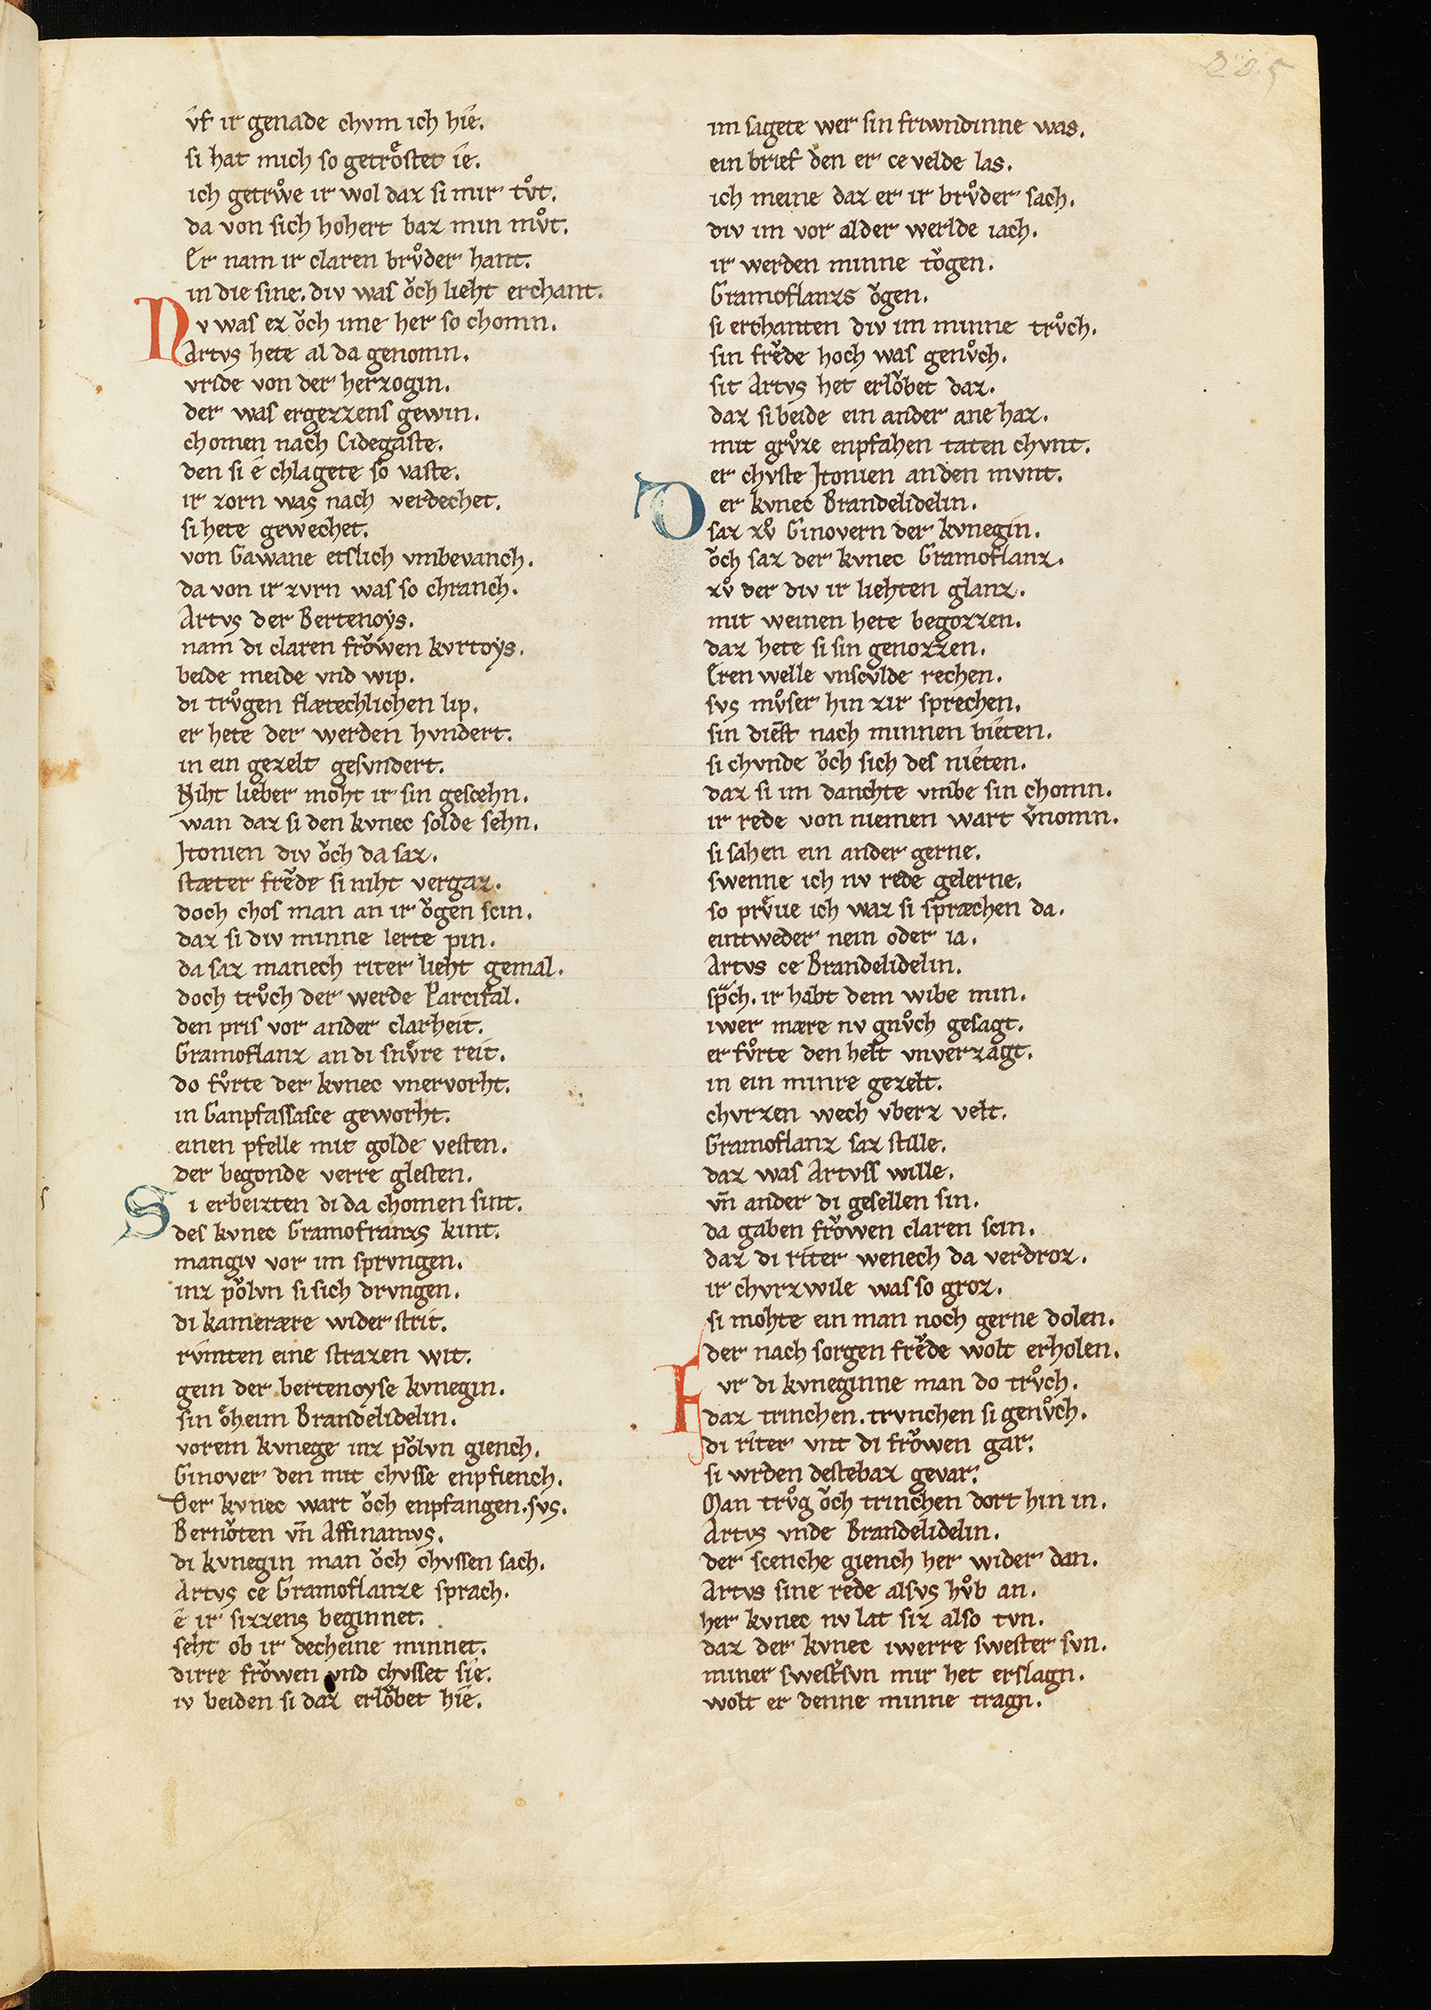 vf ir genade chvm ich hie.
si hat mich so getroͤstet ie.
ich getrwͦe ir wol daz si mir tvͦt.
da von sich hohert baz min mvͦt.
Er nam ir claren brvͦder hant.
in die sine. div was oͮch lieht erchant.
Nv was ez oͮch ime her so chomn.
Artvs hete al da genomn.
vrlde von der herzogin.
der was ergezzens gewin.
chomen nach Cidegaste.
den si e chlagete so vaste.
ir zorn was nach verdechet.
si hete gewechet.
von Gawane etslich vmbevanch.
da von ir zvrn was so chranch.
Artvs der Bertenoys.
nam di claren froͮwen kvrtoys.
beide meide vnd wip.
di trvͦgen flætechlichen lip.
er hete der werden hvndert.
in ein gezelt gesvndert.
Niht lieber moht ir sin gescehn.
wan daz si den kvnec solde sehn.
Jtonien div oͮch da saz.
stæter freͮde si niht vergaz.
doch chos man an ir oͮgen scin.
daz si div minne lerte pin.
da saz manech riter lieht gemal.
doch trvͦch der werde Parcifal.
den pris vor ander clarheit.
Gramoflanz an di snvͤre reit.
do fvͦrte der kvnec vnervorht.
in Ganpfassasce geworht.
einen pfelle mit golde vesten.
der begonde verre glesten.
Si erbeizten di da chomen sint.
des kvnec Gramofranzs kint.
mangiv vor im sprvngen.
inz poͮlvn si sich drvngen.
di kameræere wider strit.
rvmten eine strazen wit.
gein der bertenoyse kvnegin.
sin oͤheim Brandelidelin.
vorem kvnege inz poͮlvn giench.
Ginover den mit chvsse enpfiench.
Der kvnec wart oͮch enpfangen. svs.
Bernoͮten vn̄ Affinamvs.
di kvnegin man oͮch chvssen sach.
Artvs ce Gramoflanze sprach.
e ir sizzens beginnet.
seht ob ir decheine minnet.
dirre froͮwen vnd chvsset sie.
iv beiden si daz erloͮbet hie.
im sagete wer sin friwndinne was.
ein brief den er ce velde las.
ich meine daz er ir brvͦder sach.
div im vor alder werlde iach.
ir werden minne toͮgen.
Gramoflanzs oͮgen.
si erchanten div im minne trvͦch.
sin freͮde hoch was genvͦch.
sit Artvs het erloͮbet daz.
daz si beide ein ander ane haz.
mit grvͦze enpfahen taten chvnt.
er chvste Jtonien an den mvnt.
Der kvnec Brandelidelin.
saz zvͦ Ginovern der kvnegin.
oͮch saz der kvnec Gramoflanz.
zvͦ der div ir liehten glanz.
mit weinen hete begozzen.
daz hete si sin genozzen.
Eren welle vnscvlde rechen.
svs mvͦser hin zir sprechen.
sin dienst nach minnen bieten.
si chvnde oͮch sich des nieten.
daz si im danchte vmbe sin chomn.
ir rede von niemen wart v͛nomn.
si sahen ein ander gerne.
swenne ich nv rede gelerne.
so prvͤue ich waz si spræchen da.
eintweder nein oder ia.
Artvs ce Brandelidelin.
spͣch. ir habt dem wibe min.
iwer mære nv gnvͦch gesagt.
er fvͦrte den helt vnverzagt.
in ein minre gezelt.
chvrzen wech vberz velt.
Gramoflanz saz stille.
daz was Artvss wille.
vn̄ ander di gesellen sin.
da gaben froͮwen claren scin.
daz di riter wenech da verdroz.
ir chvrzwile was so groz.
si mohte ein man noch gerne dolen.
der nach sorgen freͮde wolt erholen.
Fvr di kvneginne man do trvͦch.
daz trinchen. trvnchen si genvͦch.
di riter vnt di froͮwen gar.
si wrden destebaz gevar.
Man trvͦg oͮch trinchen dort hin in.
Artvs vnde Brandelidelin.
der scenche giench her wider dan.
Artvs sine rede alsvs hvͦb an.
her kvnec nv lat siz also tvn.
daz der kvnec iwerre swester svn.
miner swest͛svn mir het erslagn.
wolt er denne minne tragn.